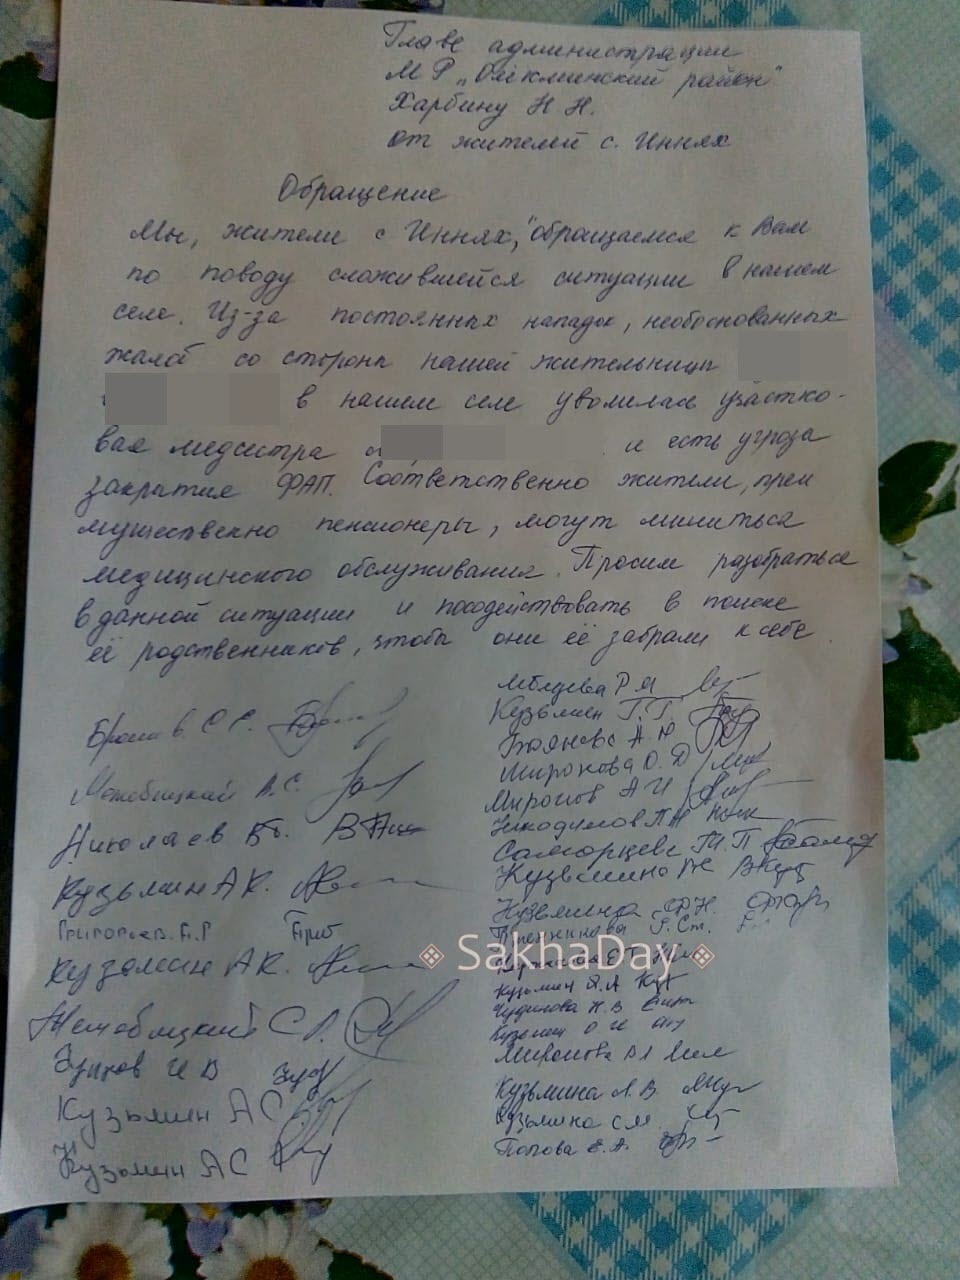 Главе администрации
МР „Олёкминский район"
Харбину Н Н.
от жителей с. Иннях
Обращение
Мы, жители с Иннях, обращаемся к Вам
по поводу сложившейся ситуации в нашем
селе. Из-за постоянных нападок, необоснованных
жалоб со стороны нашей жительницы
в нашем селе уволилась участко-
вая медсестра и есть угроза
закрытие ФАП. Соответственно жители, преи
мущественно пенсионеры, могут лишиться
медицинского обслуживания. Просим разобраться
в данной ситуации и посодействовать в поиске
её родственников, чтобы они её забрали к себе.
Николаев
Кузьмин А К.
Григорьев. А.Р
Кузьмин А К.
С
Зуйков И В
Кузьмин А С
Кузьмин А С
Лебедева Р
Кузьмин Г. Г.
Миронова О. Д
Миронов А И
Никодимов
Саморцев М. П
Кузьмина
Кузьмина Ф. Н.
SakhaDay
Кузьмин Я. А
Чудинова Н. В
Кузьмин О И
Миронова
Кузьмина Л. В.
Кузьмина С М.
Попова Е. А.